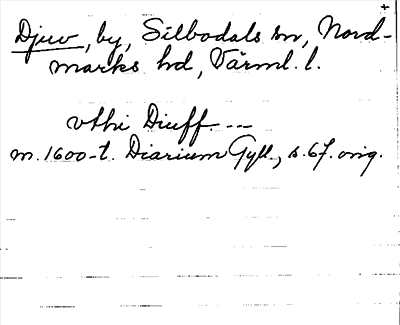 +
Djuv, by, Silbodals sn, Nord-
marks hd, Värml. l.
vthi Diuff ---
m. 1600-t. Diarium Gyll., s. 67. orig.